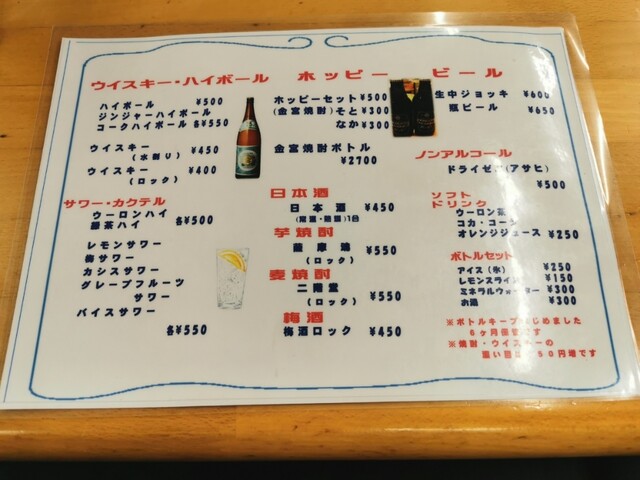 ウイスキー・ハイボール
ハイボール ¥500
ジンジャーハイボール
コークハイボール 各¥550
ウイスキー ¥450
(水割り)
ウイスキー ¥400
(ロック)
サワー・カクテル
ウーロンハイ
緑茶ハイ 各¥500
レモンサワー
梅サワー
カシスサワー
グレープフルーツ
サワー
バイスサワー
各¥550
ホッピー
ホッピーセット ¥500
(金宮焼酎) そと ¥300
なか ¥300
金宮焼酎ボトル
¥2700
日本酒
日本酒 ¥450
(常温・熱燗) 1合
芋焼酎
薩摩 ¥550
(ロック)
麦焼酎
二階堂
(ロック) ¥550
梅酒
梅酒ロック ¥450
ビール
生中ジョッキ ¥600
瓶ビール ¥650
ノンアルコール
ドライゼロ(アサヒ)
¥500
ソフト
ドリンク
ウーロン茶
コカ・コーラ
オレンジジュース ¥250
ボトルセット
アイス(氷) ¥250
レモンスライス ¥150
ミネラルウォーター ¥300
お湯 ¥300
※ボトルキープはじめました
6ヶ月保管です
※焼酎・ウイスキーの
濃い目は 50円増です